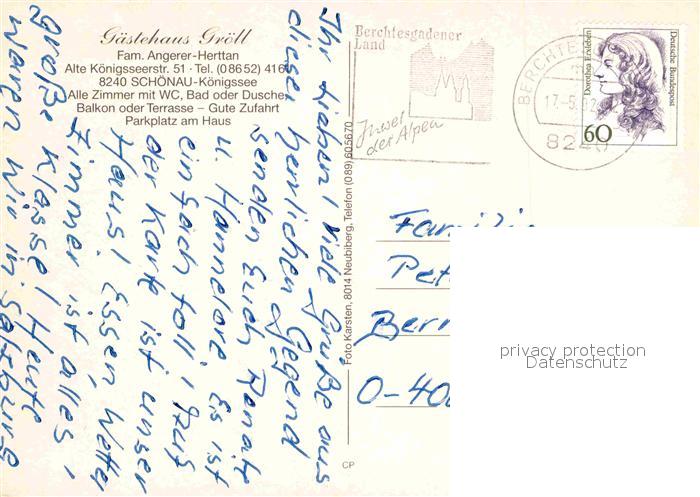 Gästehaus Gröll
Fam. Angerer-Herttan
Alte Königsseerstr. 51 · Tel. (0 86 52) 416
8240 SCHÖNAU-Königssee
Alle Zimmer mit WC, Bad oder Dusche
Balkon oder Terrasse – Gute Zufahrt
Parkplatz am Haus
Ihr Lieben! Viele Grüße aus
dieser herrlichen Gegend
senden Euch Renate
u. Hannelore. Es ist
einfach toll! Auf
der Karte ist unser
Haus! Essen, Wetter
Zimmer ist alles,
große Klasse! Heute
waren wir in Salzburg
Foto Karsten, 8014 Neubiberg, Telefon (0 89) 60 56 70
CP
Berchtesgadener
Land
Juwel
der Alpen
BERCHTE
17.-5.
8240
Dorothea Erxleben
Deutsche Bundespost
60
Familie
Pet
Ber
O-40
privacy protection
Datenschutz